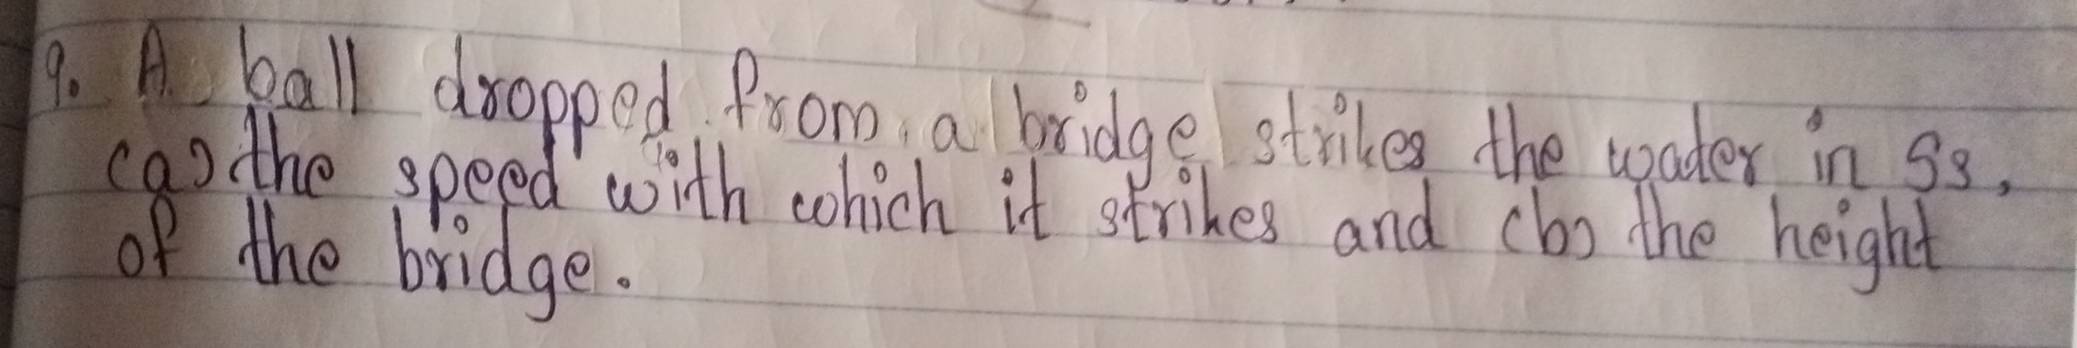 9. A ball dropped from a bridge strikes the water in 5s,
(a) the speed with which it strikes and (b) the height
of the bridge.